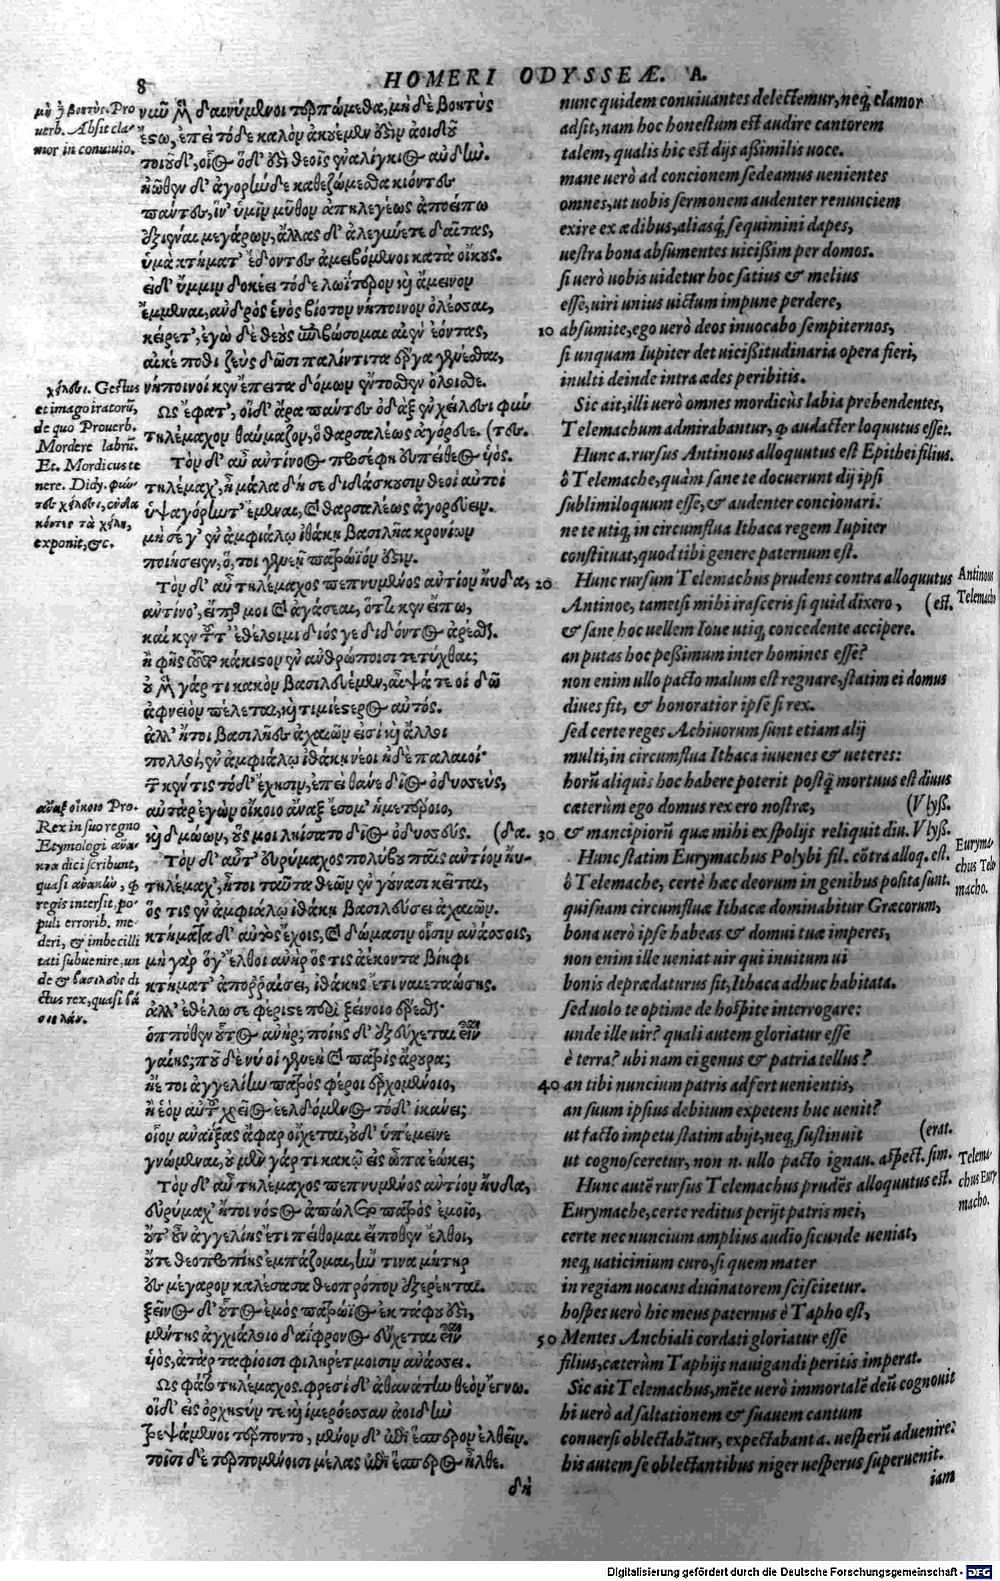 8
HOMERI ODYSSEÆ. A.
μὴ ἢ βοητὺς. Pro
uerb. Absit cla-
mor in conuiuio.
νῦν μὲν δαινύμενοι τερπώμεθα, μὴ δὲ βοητὺς
ἔστω, ἐπεὶ τόδε καλὸν ἀκουέμεν ὅξιν ἀοιδοῦ
τοιοῦδ', οἷος ὅδ' ὅξι θεοῖς ἐναλίγκιος αὐδὼ.
ἠῶθεν δ' ἀγορὼ δε καθεζώμεσθα κιόντες
πάντες, ἵν' ὑμῖν μῦθον ἀπηλεγέως ἀποείπω
ἐξιέναι μεγάρων, ἄλλας δ' ἀλεγύετε δαῖτας,
ὑμὰ κτήματ' ἔδοντες ἀμειβόμενοι κατὰ οἴκους.
εἰ δ' ὔμμιν δοκέει τόδε λωΐτερον καὶ ἄμεινον
ἔμμεναι, ἀνδρὸς ἑνὸς βίοτον νήποινον ὀλέσαι,
κείρετ', ἐγὼ δὲ θεοὺς ἐπιβώσομαι αἰὲν ἐόντας,
αἴ κέ ποθι ζεὺς δῶσι παλίντιτα ἔργα γενέσθαι,
νήποινοί κεν ἔπειτα δόμων ἔντοσθεν ὄλοισθε.
Ὣς ἔφατ', οἱ δ' ἄρα πάντες ὀδὰξ ἐν χείλεσι φύν
τηλέμαχον θαύμαζον, ὃ θαρσαλέως ἀγόρευε. (τες.
Τὸν δ' αὖ ἀντίνοος προσέφη εὐπείθεος υἱός.
τηλέμαχ', ἦ μάλα δή σε διδάσκουσιν θεοὶ αὐτοὶ
ὑψαγόρην τ' ἔμεναι, καὶ θαρσαλέως ἀγορεύειν.
μὴ σέ γ' ἐν ἀμφιάλῳ ἰθάκῃ βασιλῆα κρονίων
ποιήσειεν, ὅ, τοι γενεῇ πατρώϊόν ὅξιν.
Τὸν δ' αὖ τηλέμαχος πεπνυμένος ἀντίον ηὔδα,
ἀντίνο', εἴπερ μοι καὶ ἀγάσεαι, ὅττι κεν εἴπω,
καί κεν τοῦτ' ἐθέλοιμι διός γε διδόντος ἀρέσθαι.
ἦ φῂς τοῦτο κάκιστον ἐν ἀνθρώποισι τετύχθαι;
οὐ μὲν γάρ τι κακὸν βασιλευέμεν, αἶψά τέ οἱ δῶ
ἀφνειὸν πέλεται, καὶ τιμηέστερος αὐτός.
ἀλλ' ἤτοι βασιλῆες ἀχαιῶν εἰσὶ καὶ ἄλλοι
πολλοὶ, ἐν ἀμφιάλῳ ἰθάκῃ νέοι ἠδὲ παλαιοί·
τῶν κέν τις τόδ' ἔχῃσιν, ἐπεὶ θάνε δῖος ὀδυσσεὺς,
αὐτὰρ ἐγὼν οἴκοιο ἄναξ ἔσομ' ἡμετέροιο,
καὶ δμώων, οὕς μοι ληίσσατο δῖος ὀδυσσεύς. (δα.
Τὸν δ' αὖτ' εὐρύμαχος πολύβου παῖς ἀντίον ηὔ-
τηλέμαχ', ἤτοι ταῦτα θεῶν ἐν γούνασι κεῖται,
ὅς τις ἐν ἀμφιάλῳ ἰθάκῃ βασιλεύσει ἀχαιῶν.
κτήματα δ' αὐτὸς ἔχοις, καὶ δώμασιν οἷσιν ἀνάσσοις,
μὴ γὰρ ὅγ' ἔλθοι ἀνὴρ ὅς τις ἀέκοντα βίηφι
κτήματ' ἀποῤῥαίσει, ἰθάκης ἔτι ναιεταώσης.
ἀλλ' ἐθέλω σε φέριστε περὶ ξείνοιο ἐρέσθαι·
ὁππόθεν οὗτος ἀνήρ; ποίης δ' ἐξ εὔχεται εἶναι
γαίης; ποῦ δέ νύ οἱ γενεὴ καὶ πατρὶς ἄρουρα;
ἠέ τοι ἀγγελίην πατρὸς φέροι ἐρχομένοιο,
ἢ ἑὸν αὐτοῦ χρεῖος ἐελδόμενος τόδ' ἱκάνει;
οἷον ἀναΐξας ἄφαρ οἴχεται, οὐδ' ὑπέμεινε
γνώμεναι, οὐ μὲν γάρ τι κακῷ εἰς ὦπα ἐῴκει;
Τὸν δ' αὖ τηλέμαχος πεπνυμένος ἀντίον ηὔδα,
εὐρύμαχ' ἤτοι νόστος ἀπώλετο πατρὸς ἐμοῖο,
οὔτ' οὖν ἀγγελίης ἔτι πείθομαι εἴποθεν ἔλθοι,
οὔτε θεοπροπίης ἐμπάζομαι, ἥν τινα μήτηρ
ἐς μέγαρον καλέσασα θεοπρόπον ἐξερέηται.
ξεῖνος δ' οὗτος ἐμὸς πατρώϊος ἐκ τάφου ὅξι,
μέντης ἀγχιάλοιο δαΐφρονος εὔχεται εἶναι
υἱὸς, ἀτὰρ ταφίοισι φιληρέτμοισιν ἀνάσσει.
Ὣς φάτο τηλέμαχος. φρεσὶ δ' ἀθανάτην θεὸν ἔγνω.
οἱ δ' εἰς ὀρχηστύν τε καὶ ἱμερόεσσαν ἀοιδὼ
τρεψάμενοι τέρποντο, μένον δ' ἐπὶ ἕσπερον ἐλθεῖν.
τοῖσι δὲ τερπομένοισι μέλας ἐπὶ ἕσπερος ἦλθε.
δὴ
χείλεσι. Gestus
et imago iratorũ,
de quo Prouerb.
Mordere labrũ.
Et. Mordicus te
nere. Didy. φύν-
τες χείλεσι, οὐδα
κόντες τὰ χείλη,
exponit, &c.
ἄναξ οἴκοιο Pro.
Rex in suo regno
Etymologi ἄνα-
κτα dici scribunt,
quasi ἀνακῶν, φ
regis intersit, po-
puli errorib. me-
deri, & imbecilli
tati subuenire, un
de & βασιλεὺς di
ctus rex, quasi βά
σις λάν.
nunc quidem conuiuantes delectemur, neq; clamor
adsit, nam hoc honestum est audire cantorem
talem, qualis hic est dijs assimilis uoce.
mane uerò ad concionem sedeamus uenientes
omnes, ut uobis sermonem audenter renunciem
exire ex ædibus, aliasq́; sequimini dapes,
uestra bona absumentes uicissim per domos.
si uerò uobis uidetur hoc satius & melius
esse, uiri unius uictum impune perdere,
10 absumite, ego uerò deos inuocabo sempiternos,
si unquam Iupiter det uicissitudinaria opera fieri,
inulti deinde intra ædes peribitis.
Sic ait, illi uerò omnes mordicùs labia prehendentes,
Telemachum admirabantur, φ audacter loquutus esset.
Hunc a. rursus Antinous alloquutus est Epithei filius.
ô Telemache, quàm sane te docuerunt dij ipsi
sublimiloquum esse, & audenter concionari:
ne te utiq; in circumflua Ithaca regem Iupiter
constituat, quod tibi genere paternum est.
20 Hunc rursum Telemachus prudens contra alloquutus
Antinoe, tametsi mihi irasceris si quid dixero, (est.
& sane hoc uellem Ioue utiq; concedente accipere.
an putas hoc pessimum inter homines esse?
non enim ullo pacto malum est regnare, statim ei domus
diues fit, & honoratior ipse si rex.
sed certe reges Achiuorum sunt etiam alij
multi, in circumflua Ithaca iuuenes & ueteres:
horũ aliquis hoc habere poterit postq̃ mortuus est diuus
cæterùm ego domus rex ero nostræ, (Vlyss.
30 & mancipiorũ quæ mihi ex spolijs reliquit diu. Vlyss.
Hunc statim Eurymachus Polybi fil. cõtra alloq. est.
ô Telemache, certè hæc deorum in genibus posita sunt.
quisnam circumfluæ Ithacæ dominabitur Græcorum,
bona uerò ipse habeas & domui tuæ imperes,
non enim ille ueniat uir qui inuitum ui
bonis deprædaturus sit, Ithaca adhuc habitata.
sed uolo te optime de hospite interrogare:
unde ille uir? quali autem gloriatur esse
è terra? ubi nam ei genus & patria tellus?
40 an tibi nuncium patris adfert uenientis,
an suum ipsius debitum expetens huc uenit?
ut facto impetu statim abijt, neq; sustinuit (erat.
ut cognosceretur, non n. ullo pacto ignau. aspect. sim.
Hunc autẽ rursus Telemachus prudẽs alloquutus est.
Eurymache, certe reditus perijt patris mei,
certe nec nuncium amplius audio sicunde ueniat,
neq; uaticinium curo, si quem mater
in regiam uocans diuinatorem sciscitetur.
hospes uerò hic meus paternus è Tapho est,
50 Mentes Anchiali cordati gloriatur esse
filius, cæterùm Taphijs nauigandi peritis imperat.
Sic ait Telemachus, mẽte uerò immortalẽ deũ cognouit
hi uerò ad saltationem & suauem cantum
conuersi oblectabãtur, expectabant a. uesperũ aduenire:
his autem se oblectantibus niger uesperus superuenit.
iam
Antinous
Telemacho
Euryma-
chus Tele
macho.
Telema-
chus Eury
macho.
Digitalisierung gefördert durch die Deutsche Forschungsgemeinschaft - DFG